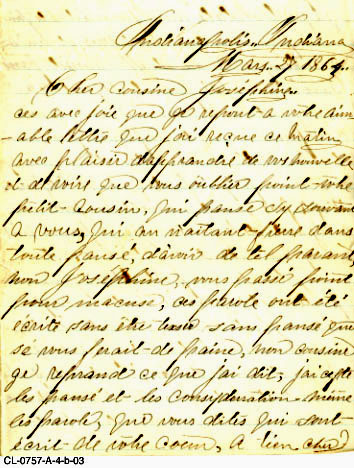 Indianapolis, Indiana
Mars 27 1864.
Cher cousine Joséphine.
ces avec joie que je repont a votre aim-
able lettre que j'ai reçue ce matin
avec plaisir d'apprandre de vos nouvelle
et de voire que vous oublier point votre
petit cousin, qui panse sy souvant
a vous, qui an naitant fiere dans
toute pansé, d'avoir de tel parant,
non Joséphine, vous passé point
pour macuse, ces parole ont été
écrite sans être sans pansé que
se vous ferait de paine, mon cousine
ge reprand ce que jai dit, j'aicepte
les pansé et les consideration même
les parole, que vous dites qui sont
écrit de votre coeur, A bien cher
CL-0757-A-4-b-03